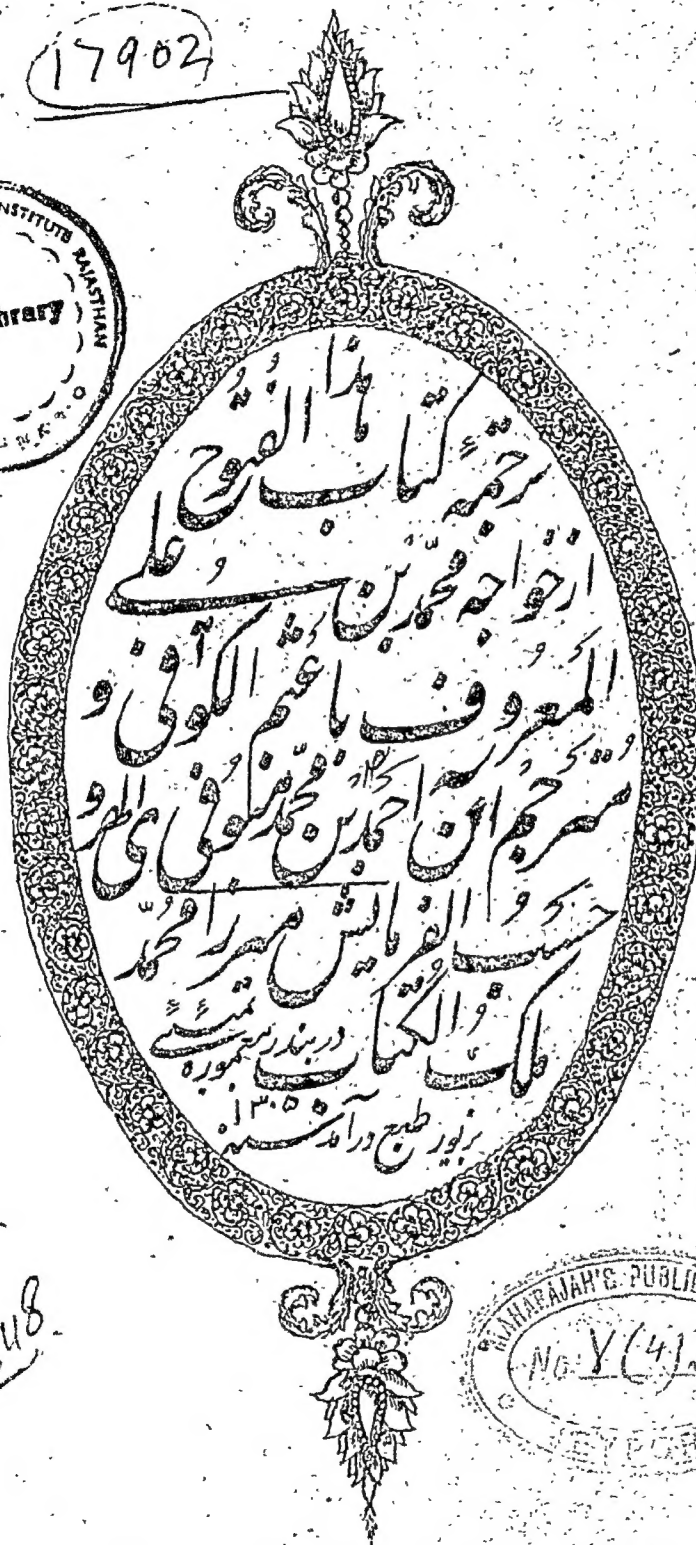 17902
INSTITUTE RAJASTHAN
هاذا
ترجمهٔ کتاب الفتوح
از خواجه محمّد بن علی
المعروف باعثم الکوفی و
مترجم ابن احمد بن محمّد منوفی الهرو
حسب الفرمایش میرزا محمّد
ملک الکتاب
در بندر معموره
بزیور طبع در آمد سنه ۱۳۰۵
MAHARAJAH'S PUBLI
No. Y (4)